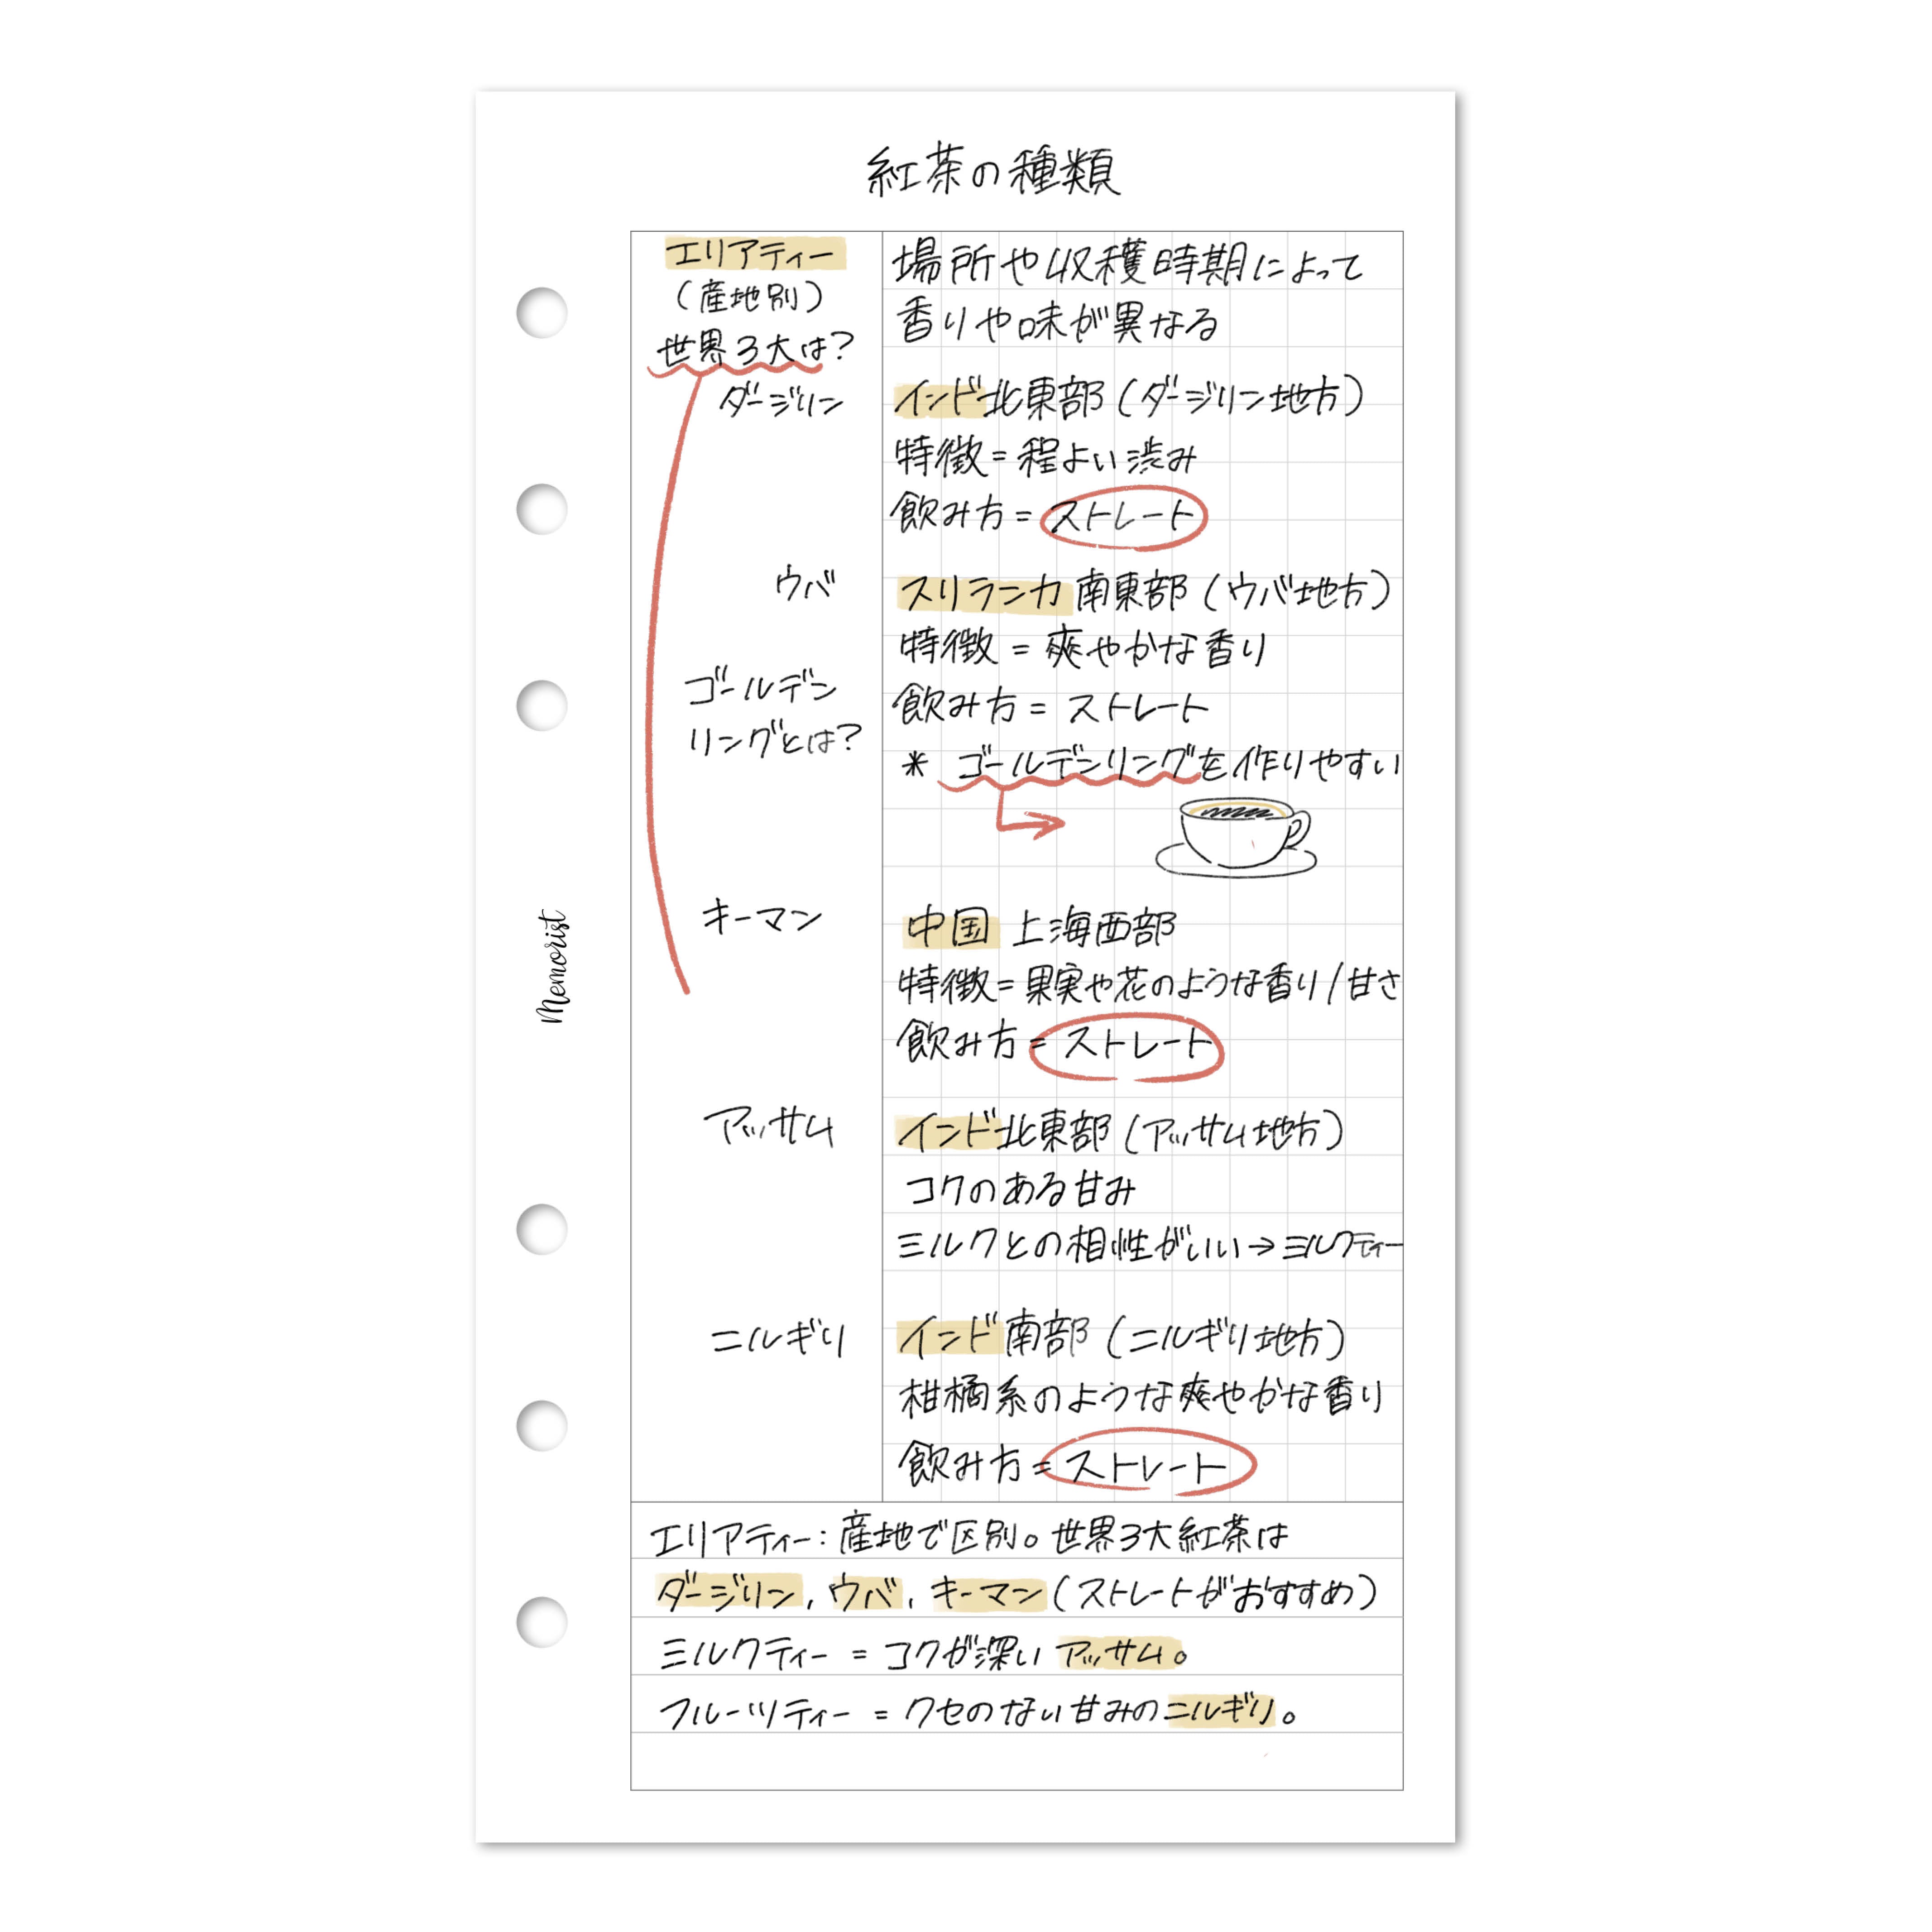 紅茶の種類
エリアティー
(産地別)
世界3大は?
場所や収穫時期によって
香りや味が異なる
ダージリン
インド北東部(ダージリン地方)
特徴=程よい渋み
飲み方=ストレート
ウバ
スリランカ南東部(ウバ地方)
特徴=爽やかな香り
飲み方=ストレート
ゴールデン
リングとは?
* ゴールデンリングを作りやすい
キーマン
中国 上海西部
特徴=果実や花のような香り/甘さ
飲み方=ストレート
アッサム
インド北東部(アッサム地方)
コクのある甘み
ミルクとの相性がいい→ミルクティー
ニルギリ
インド南部(ニルギリ地方)
柑橘系のような爽やかな香り
飲み方=ストレート
エリアティー:産地で区別。世界3大紅茶は
ダージリン, ウバ, キーマン(ストレートがおすすめ)
ミルクティー = コクが深いアッサム。
フルーツティー = クセのない甘みのニルギリ。
Memorist